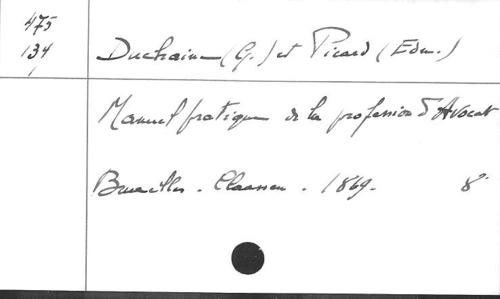 475
134
Duchaine (G.) et Picard (Edm.)
Manuel pratique de la profession d'Avocat
Bruxelles. Claassen. 1869. 8°